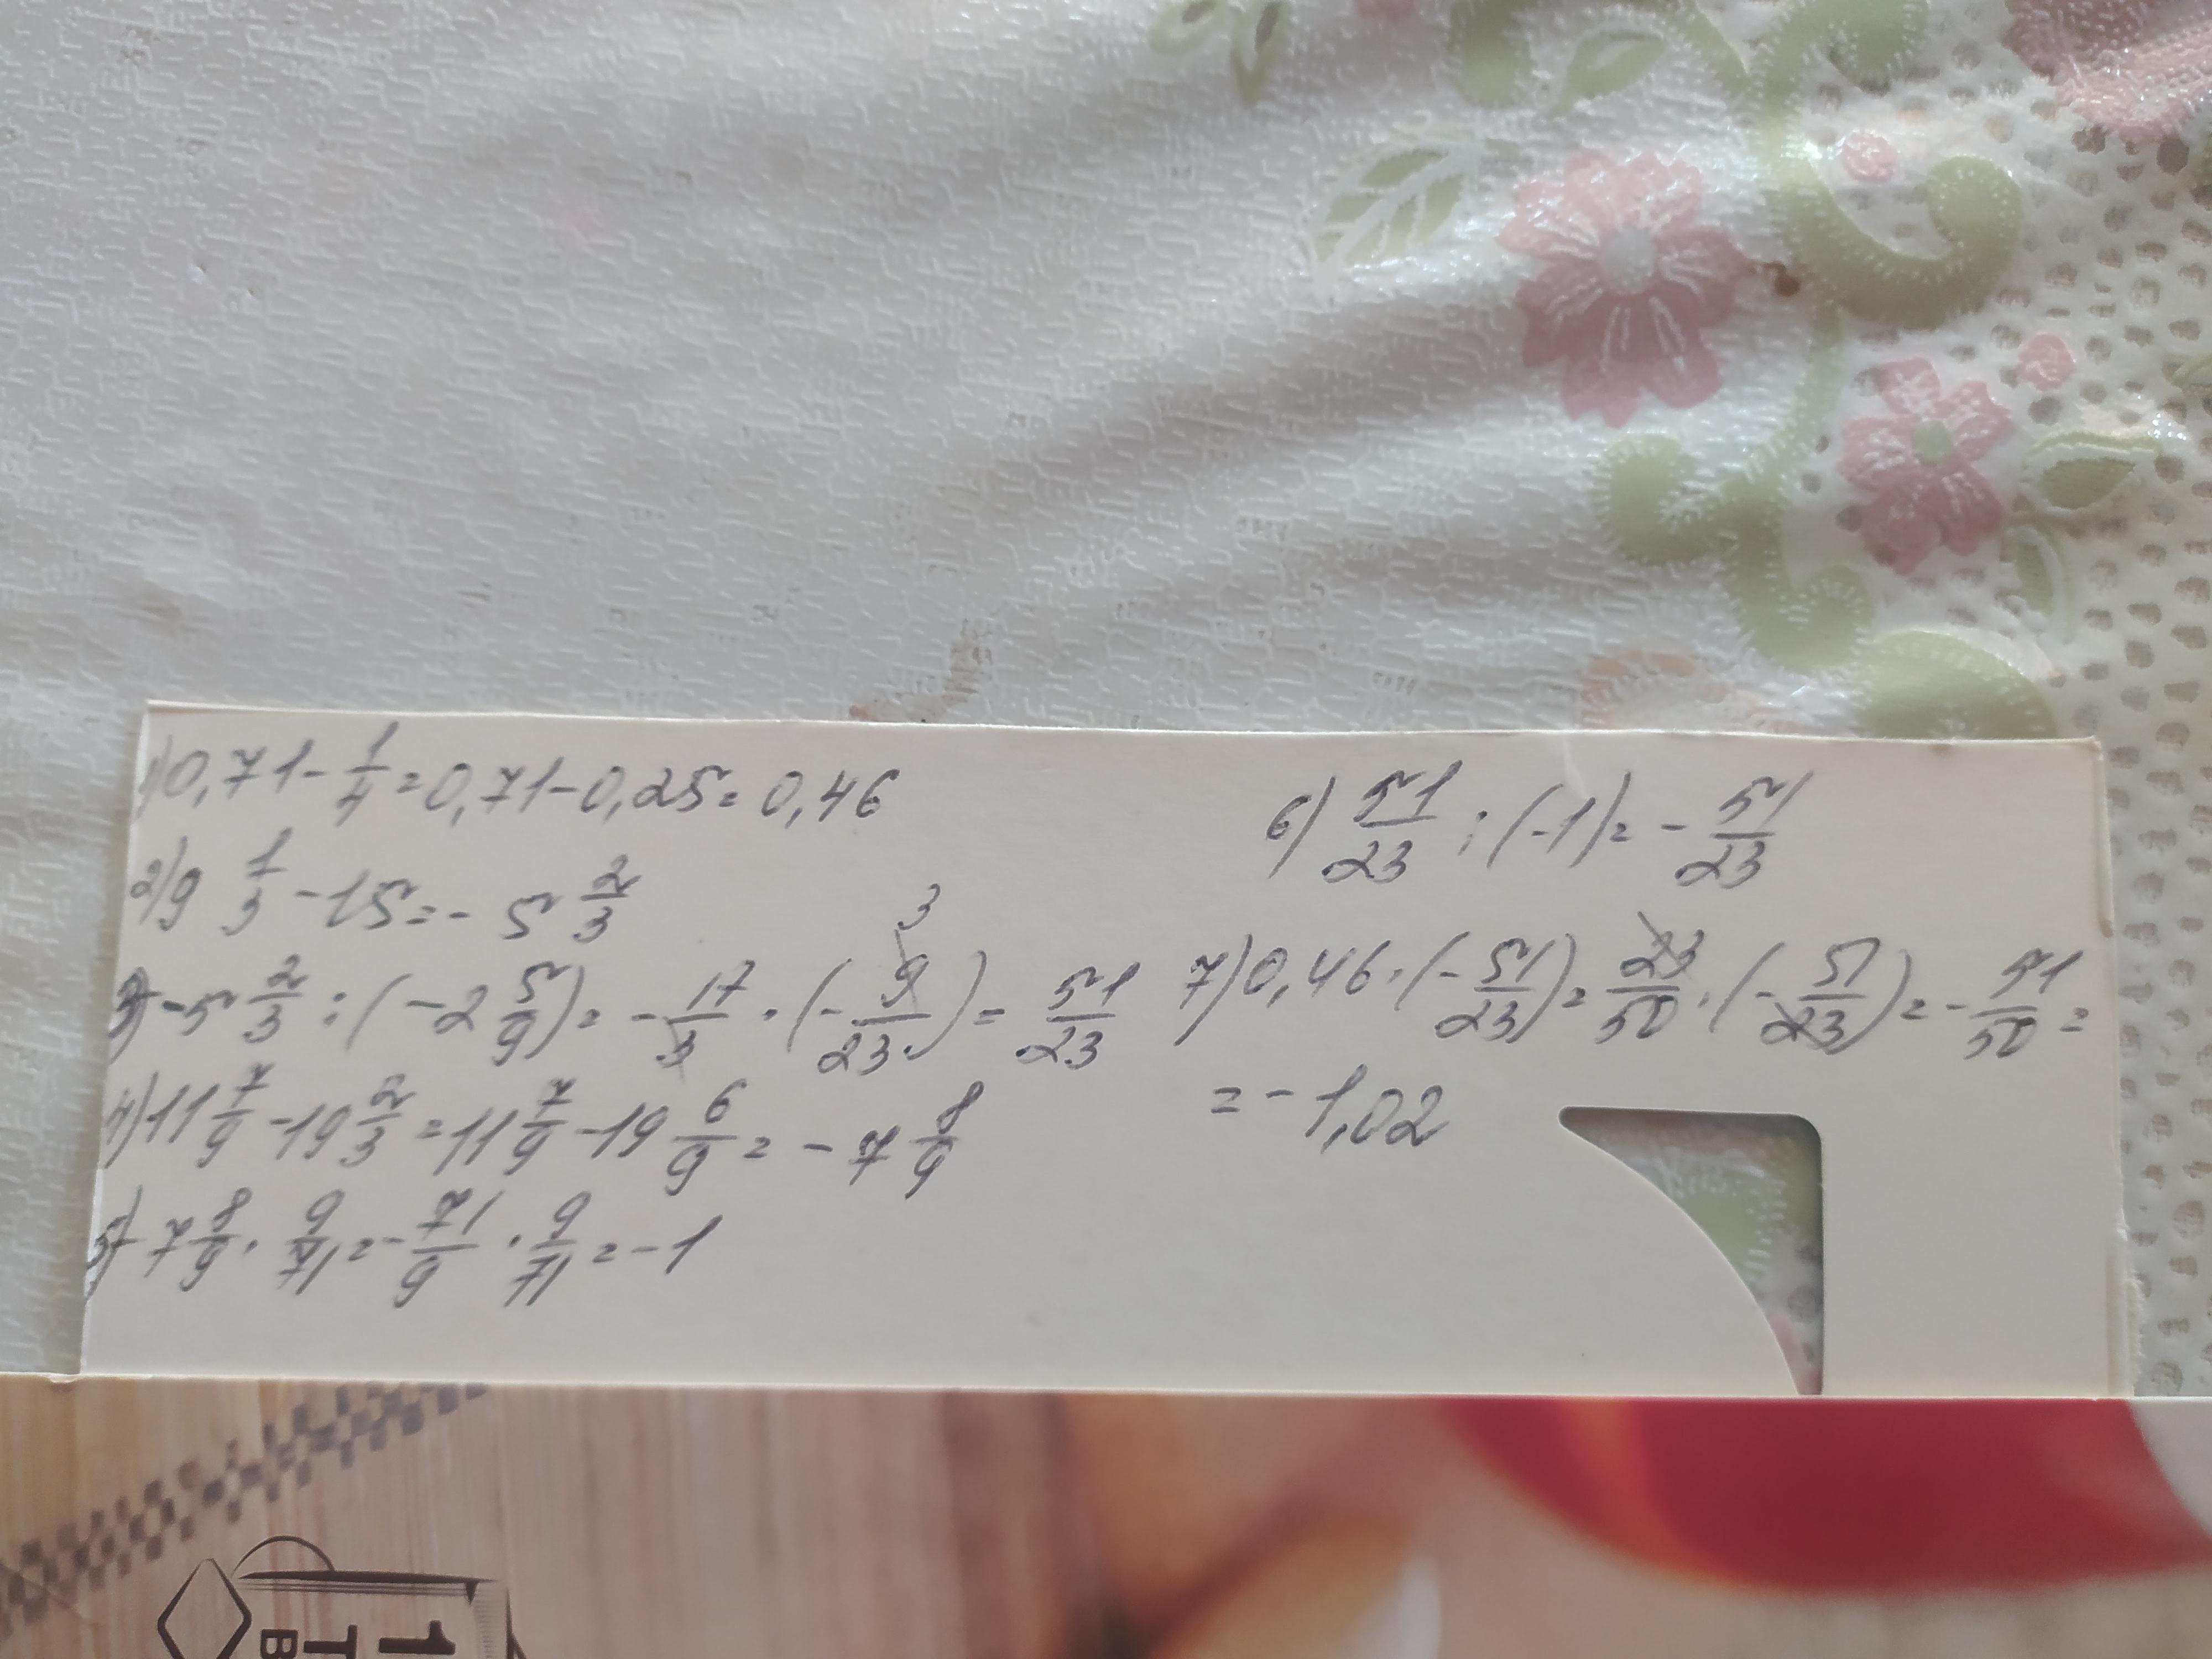 1) 0,71 - 1/4 = 0,71 - 0,25 = 0,46
2) 9 1/3 - 15 = - 5 2/3
3) - 5 2/3 : (- 2 5/9) = - 17/3 · (- 9/23) = 51/23
3
4) 11 7/9 - 19 2/3 = 11 7/9 - 19 6/9 = - 7 8/9
5) - 7 8/9 · 9/71 = - 71/9 · 9/71 = - 1
6) 51/23 : (-1) = - 51/23
7) 0,46 · (- 51/23) = 23/50 · (- 51/23) = - 51/50 =
= - 1,02
1
Т
В